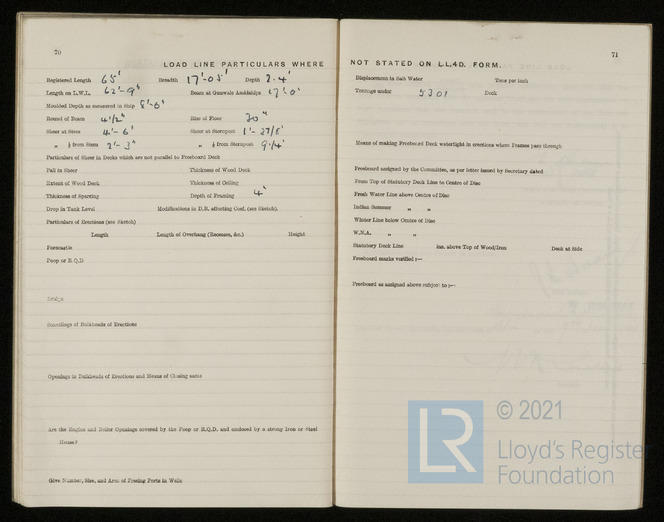 70
LOAD LINE PARTICULARS WHERE
Registered Length 65' Breadth 17'-05' Depth 8·4'
Length on L.W.L. 62'-9" Beam at Gunwale Amidships 17'-0"
Moulded Depth as measured in Ship 8'-6"
Round of Beam 4 1/2" Rise of Floor 20"
Sheer at Stem 4'-6" Sheer at Sternpost
„ ⅛ from Stem 2'-3" „ ⅛ from Sternpost
Particulars of Sheer in Decks which are not parallel to Freeboard Deck
Fall in Sheer Thickness of Wood Deck
Extent of Wood Deck Thickness of Ceiling
Thickness of Sparring Depth of Framing 4"
Drop in Tank Level Modifications in D.B. affecting Coef. (see Sketch).
Particulars of Erections (see Sketch)
Length Length of Overhang (Recesses, &c.) Height
Forecastle
Poop or R.Q.D
Bridge
Scantlings of Bulkheads of Erections
Openings in Bulkheads of Erections and Means of Closing same
Are the Engine and Boiler Openings covered by the Poop or R.Q.D. and enclosed by a strong Iron or Steel
House?
Give Number, Size, and Area of Freeing Ports in Wells
71
NOT STATED ON LL.4D. FORM.
Displacement in Salt Water Tons per inch
Tonnage under 5301 Deck
Means of making Freeboard Deck watertight in erections where Frames pass through
Freeboard assigned by the Committee, as per letter issued by Secretary dated
From Top of Statutory Deck Line to Centre of Disc
Fresh Water Line above Centre of Disc
Indian Summer „ „
Winter Line below Centre of Disc
W.N.A. „ „
Statutory Deck Line ins. above Top of Wood/Iron Deck at Side
Freeboard marks verified :—
Freeboard as assigned above subject to :—
LR
© 2021
Lloyd's Register
Foundation